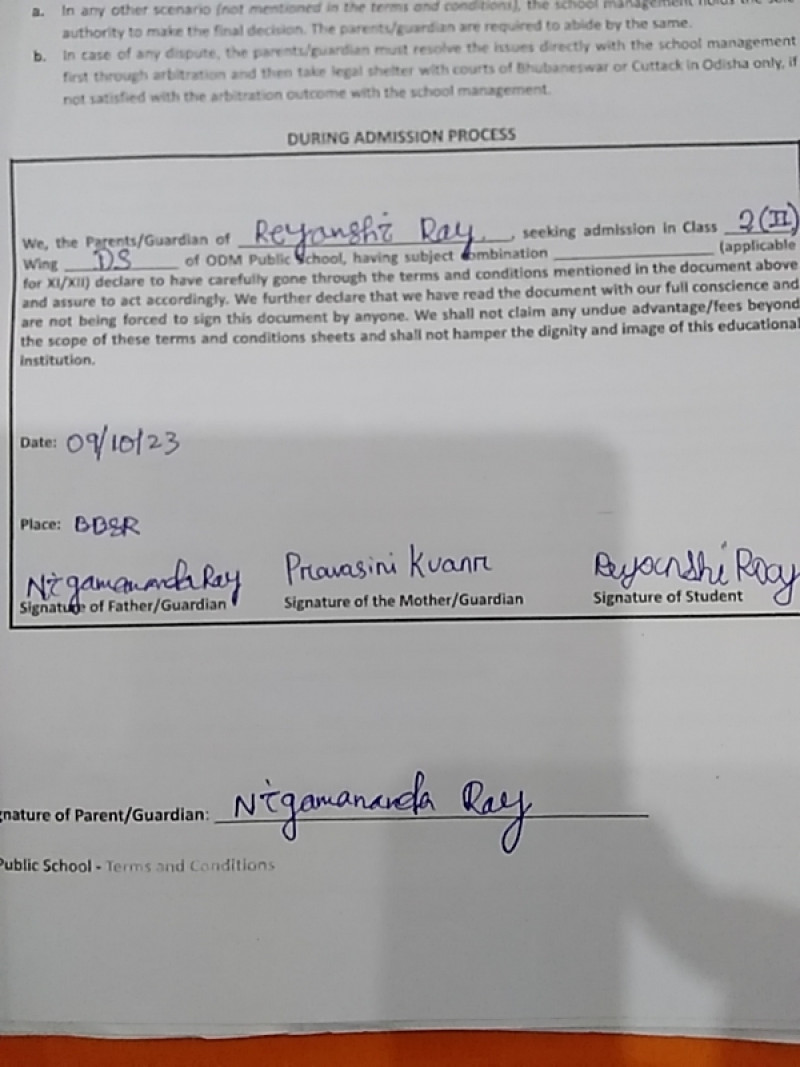 a. In any other scenario (not mentioned in the terms and conditions), the school management holds the sole
authority to make the final decision. The parents/guardian are required to abide by the same.
b. In case of any dispute, the parents/guardian must resolve the issues directly with the school management
first through arbitration and then take legal shelter with courts of Bhubaneswar or Cuttack in Odisha only, if
not satisfied with the arbitration outcome with the school management.
DURING ADMISSION PROCESS
We, the Parents/Guardian of Reyanshi Ray, seeking admission in Class 2(II)
Wing DS of ODM Public School, having subject combination (applicable
for XI/XII) declare to have carefully gone through the terms and conditions mentioned in the document above
and assure to act accordingly. We further declare that we have read the document with our full conscience and
are not being forced to sign this document by anyone. We shall not claim any undue advantage/fees beyond
the scope of these terms and conditions sheets and shall not hamper the dignity and image of this educational
institution.
Date: 09/10/23
Place: BBSR
Nigamananda Ray Pravasini Kuanr Reyanshi Ray
Signature of Father/Guardian Signature of the Mother/Guardian Signature of Student
gnature of Parent/Guardian: Nigamananda Ray
Public School - Terms and Conditions